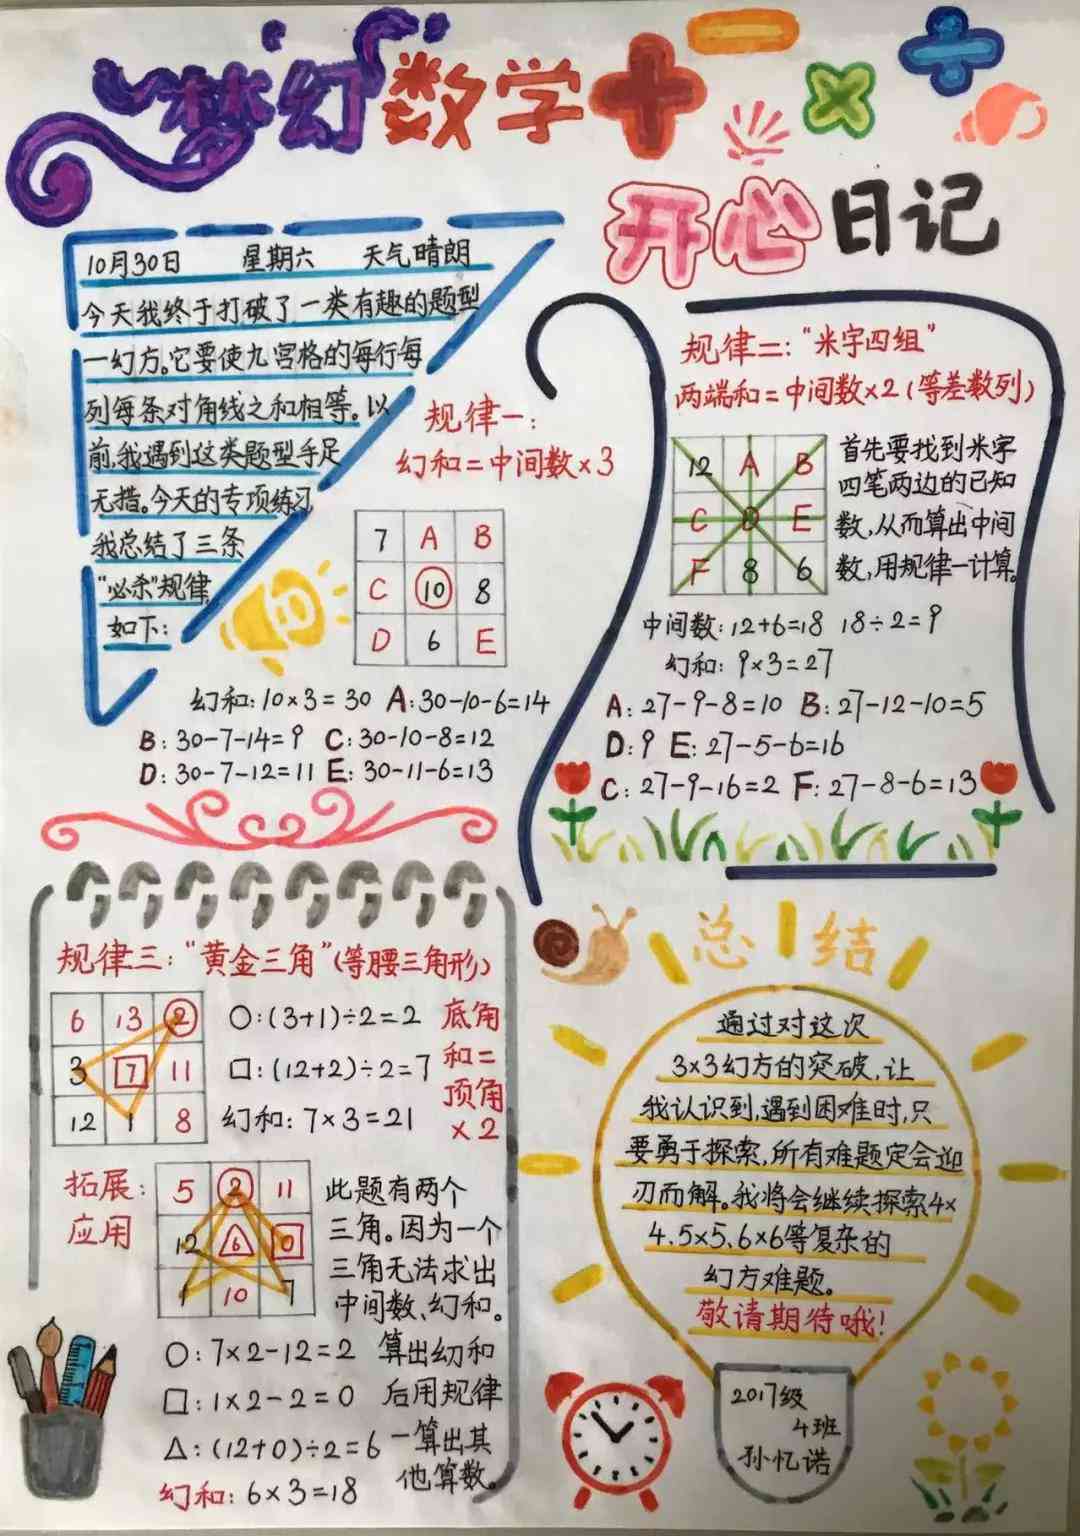 梦幻数学
开心日记
10月30日 星期六 天气晴朗
今天我终于打破了一类有趣的题型
一幻方。它要使九宫格的每行每
列每条对角线之和相等。以
前,我遇到这类题型手足
无措。今天的专项练习
我总结了三条
“必杀”规律,
如下:
规律一:
幻和=中间数×3
7 A B
C 10 8
D 6 E
幻和:10×3=30 A:30-10-6=14
B:30-7-14=9 C:30-10-8=12
D:30-7-12=11 E:30-11-6=13
规律二:“米字四组”
两端和=中间数×2(等差数列)
12 A B
C D E
F 8 6
首先要找到米字
四笔两边的已知
数,从而算出中间
数,用规律一计算。
中间数:12+6=18 18÷2=9
幻和:9×3=27
A:27-9-8=10 B:27-12-10=5
D:9 E:27-5-6=16
C:27-9-16=2 F:27-8-6=13
规律三:“黄金三角”(等腰三角形)
6 13 2
3 7 11
12 1 8
○:(3+1)÷2=2
□:(12+2)÷2=7
幻和:7×3=21
底角
和=
顶角
×2
拓展:
应用
5 2 11
12 6 0
1 10 7
此题有两个
三角。因为一个
三角无法求出
中间数、幻和。
○:7×2-12=2
□:1×2-2=0
△:(12+0)÷2=6
幻和:6×3=18
算出幻和
后用规律
一算出其
他算数。
总结
通过对这次
3×3幻方的突破,让
我认识到,遇到困难时,只
要勇于探索,所有难题定会迎
刃而解。我将会继续探索4×
4.5×5.6×6等复杂的
幻方难题。
敬请期待哦!
2017级
4班
孙忆诺